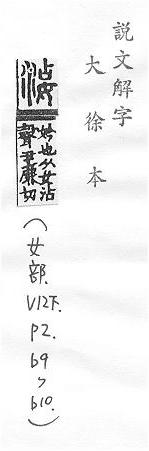 說文解字
大徐本
妗也从女沾
聲丑廉切
(女部.V12下.P2.b9>b10.)